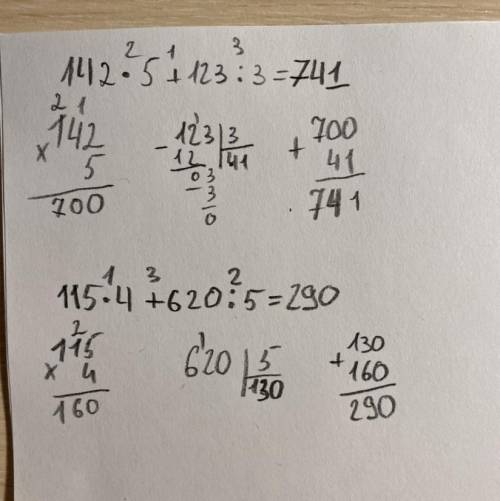 2 1 3
142 · 5 + 123 : 3 = 741
2 1
× 142
5
700
- 123 | 3
12 41
03
- 3
0
+ 700
41
741
1 3 2
115 · 4 + 620 : 5 = 290
2
× 115
4
160
620 | 5
130
+ 130
160
290